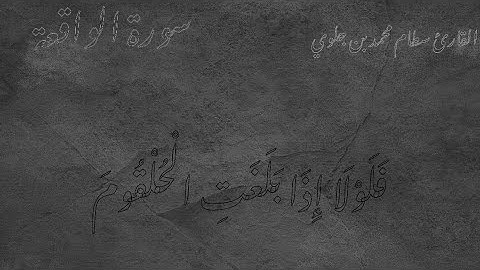 سورة الواقعة
القارئ سطام محمد بن جلوي
فَلَوْلَا إِذَا بَلَغَتِ الْحُلْقُومَ